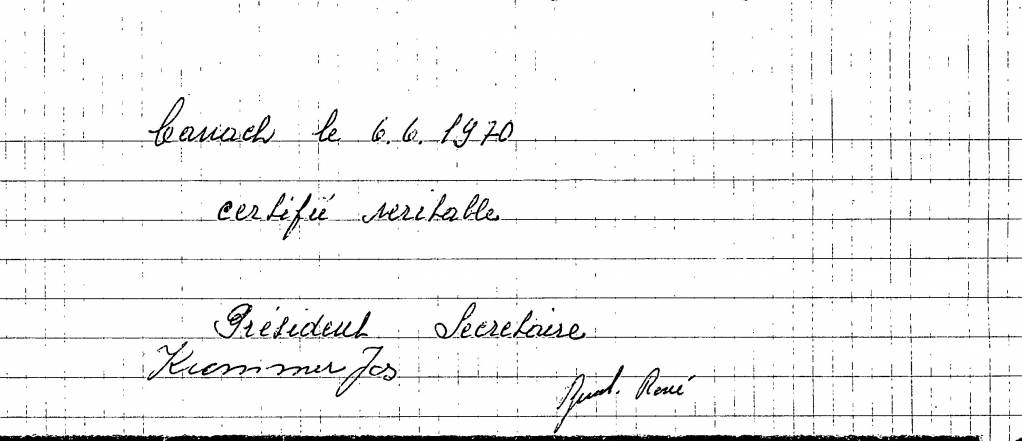 Canach le 6.6.1970
certifié veritable
Président Secretaire
Krommer Jos
René